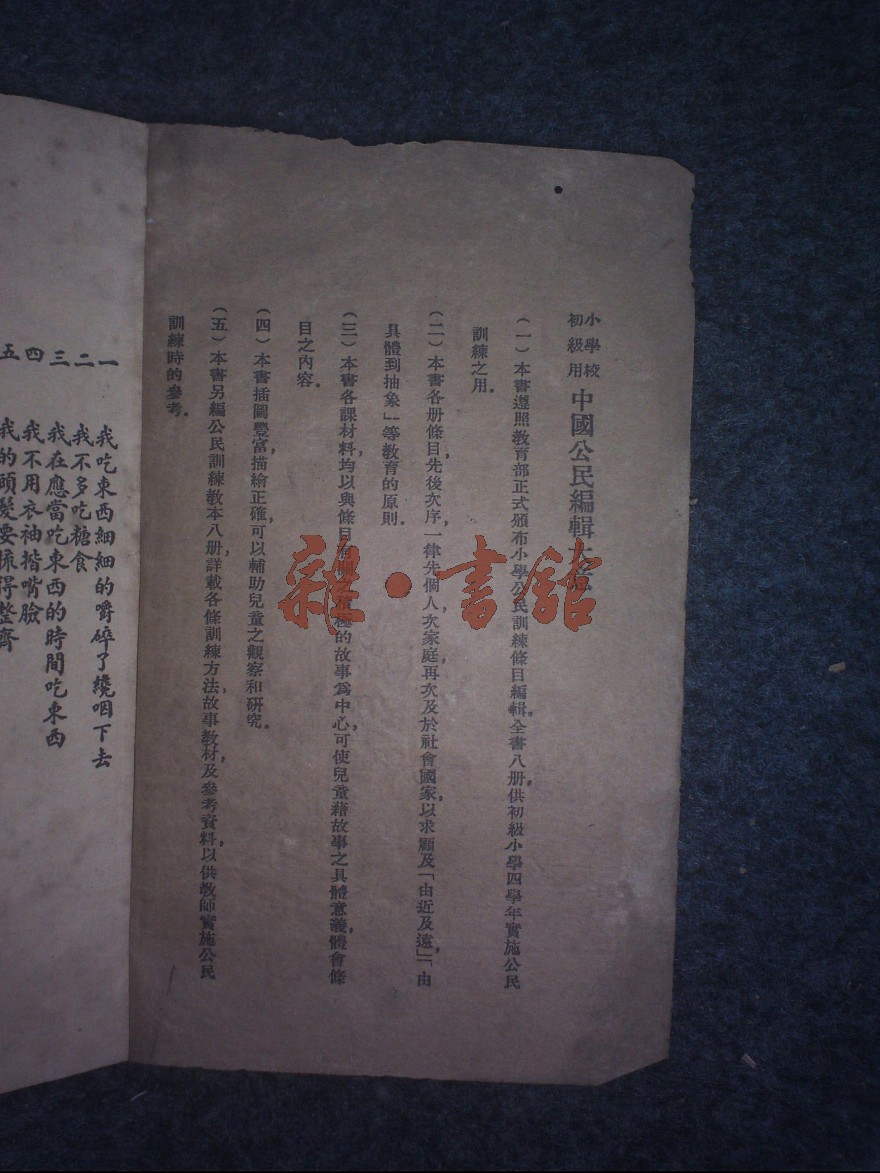 小學校
初級用
中國公民編輯大意
(一)本書遵照教育部正式頒布小學公民訓練條目編輯。全書八册,供初級小學四學年實施公民
訓練之用。
(二)本書各册條目先後次序,一律先個人次家庭再次及於社會國家,以求顧及「由近及遠」「由
具體到抽象」等教育的原則。
(三)本書各課材料,均以與條目有關之積極的故事爲中心,可使兒童藉故事之具體意義,體會條
目之內容。
(四)本書插圖豐富,描繪正確,可以輔助兒童之觀察和研究。
(五)本書另編公民訓練教本八册,詳載各條訓練方法,故事教材,及參考資料,以供教師實施公民
訓練時的參考。
一 我吃東西細細的嚼碎了纔咽下去
二 我不多吃糖食
三 我在應當吃東西的時間吃東西
四 我不用衣袖揩嘴臉
五 我的頭髮要梳得整齊
雜·書館